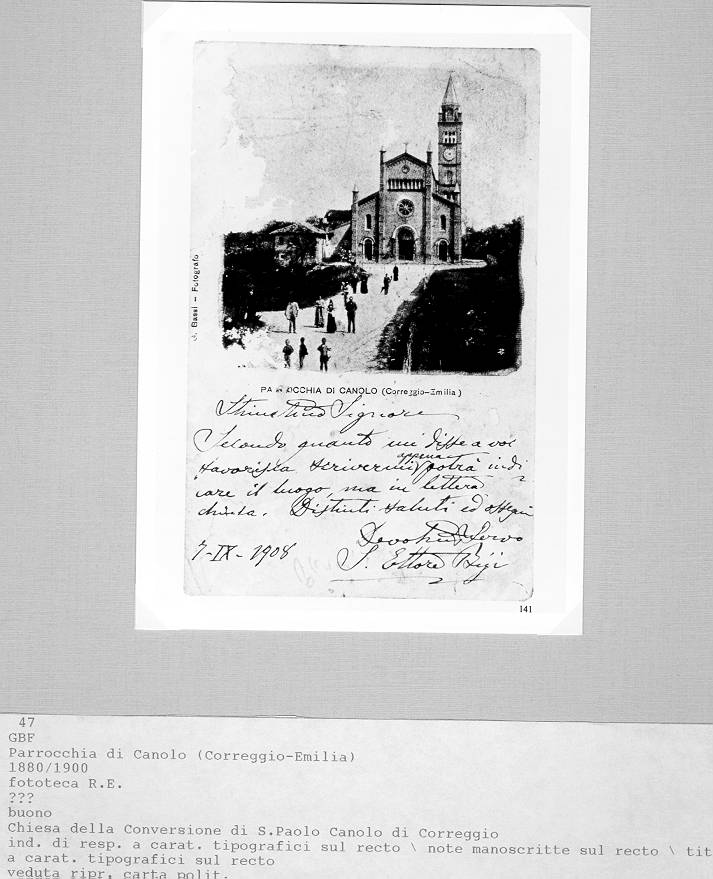 G. Bassi – Fotografo
PARROCCHIA DI CANOLO (Correggio-Emilia)
Signore
Secondo quanto mi disse a voi
appena
favorisca scrivermi potrà indi
care il luogo, ma in lettera
chiusa. Distinti saluti ed ossequi
Servo
7-IX-1908
Ettore Bigi
141
47
GBF
Parrocchia di Canolo (Correggio-Emilia)
1880/1900
fototeca R.E.
???
buono
Chiesa della Conversione di S.Paolo Canolo di Correggio
ind. di resp. a carat. tipografici sul recto \ note manoscritte sul recto \ tit
a carat. tipografici sul recto
veduta ripr. carta polit.